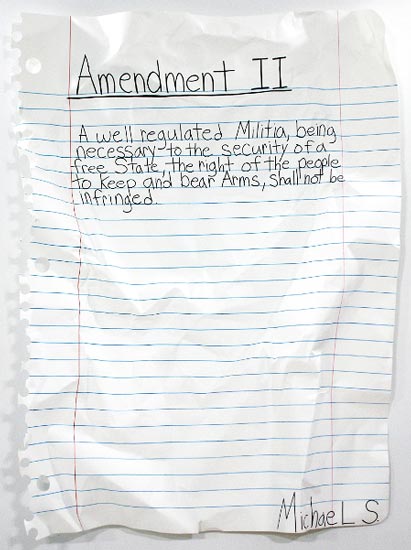 Amendment II
A well regulated Militia, being
necessary to the security of a
free State, the right of the people
to keep and bear Arms, shall not be
infringed.
Michael S.